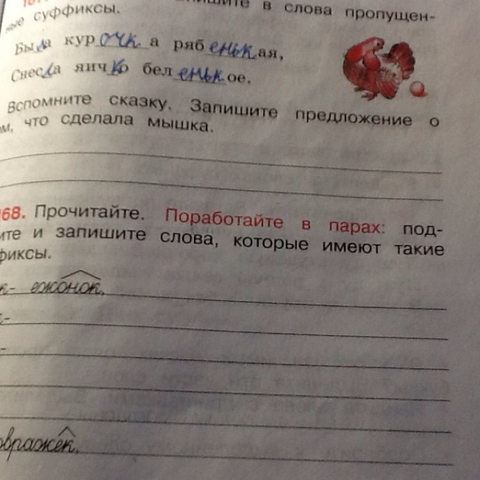 в слова пропущен-
ные суффиксы.
Была курочка рябенькая,
Снесла яичко беленькое.
Вспомните сказку. Запишите предложение о
том, что сделала мышка.
168. Прочитайте. Поработайте в парах: под-
и запишите слова, которые имеют такие
ежонок.
овражек.